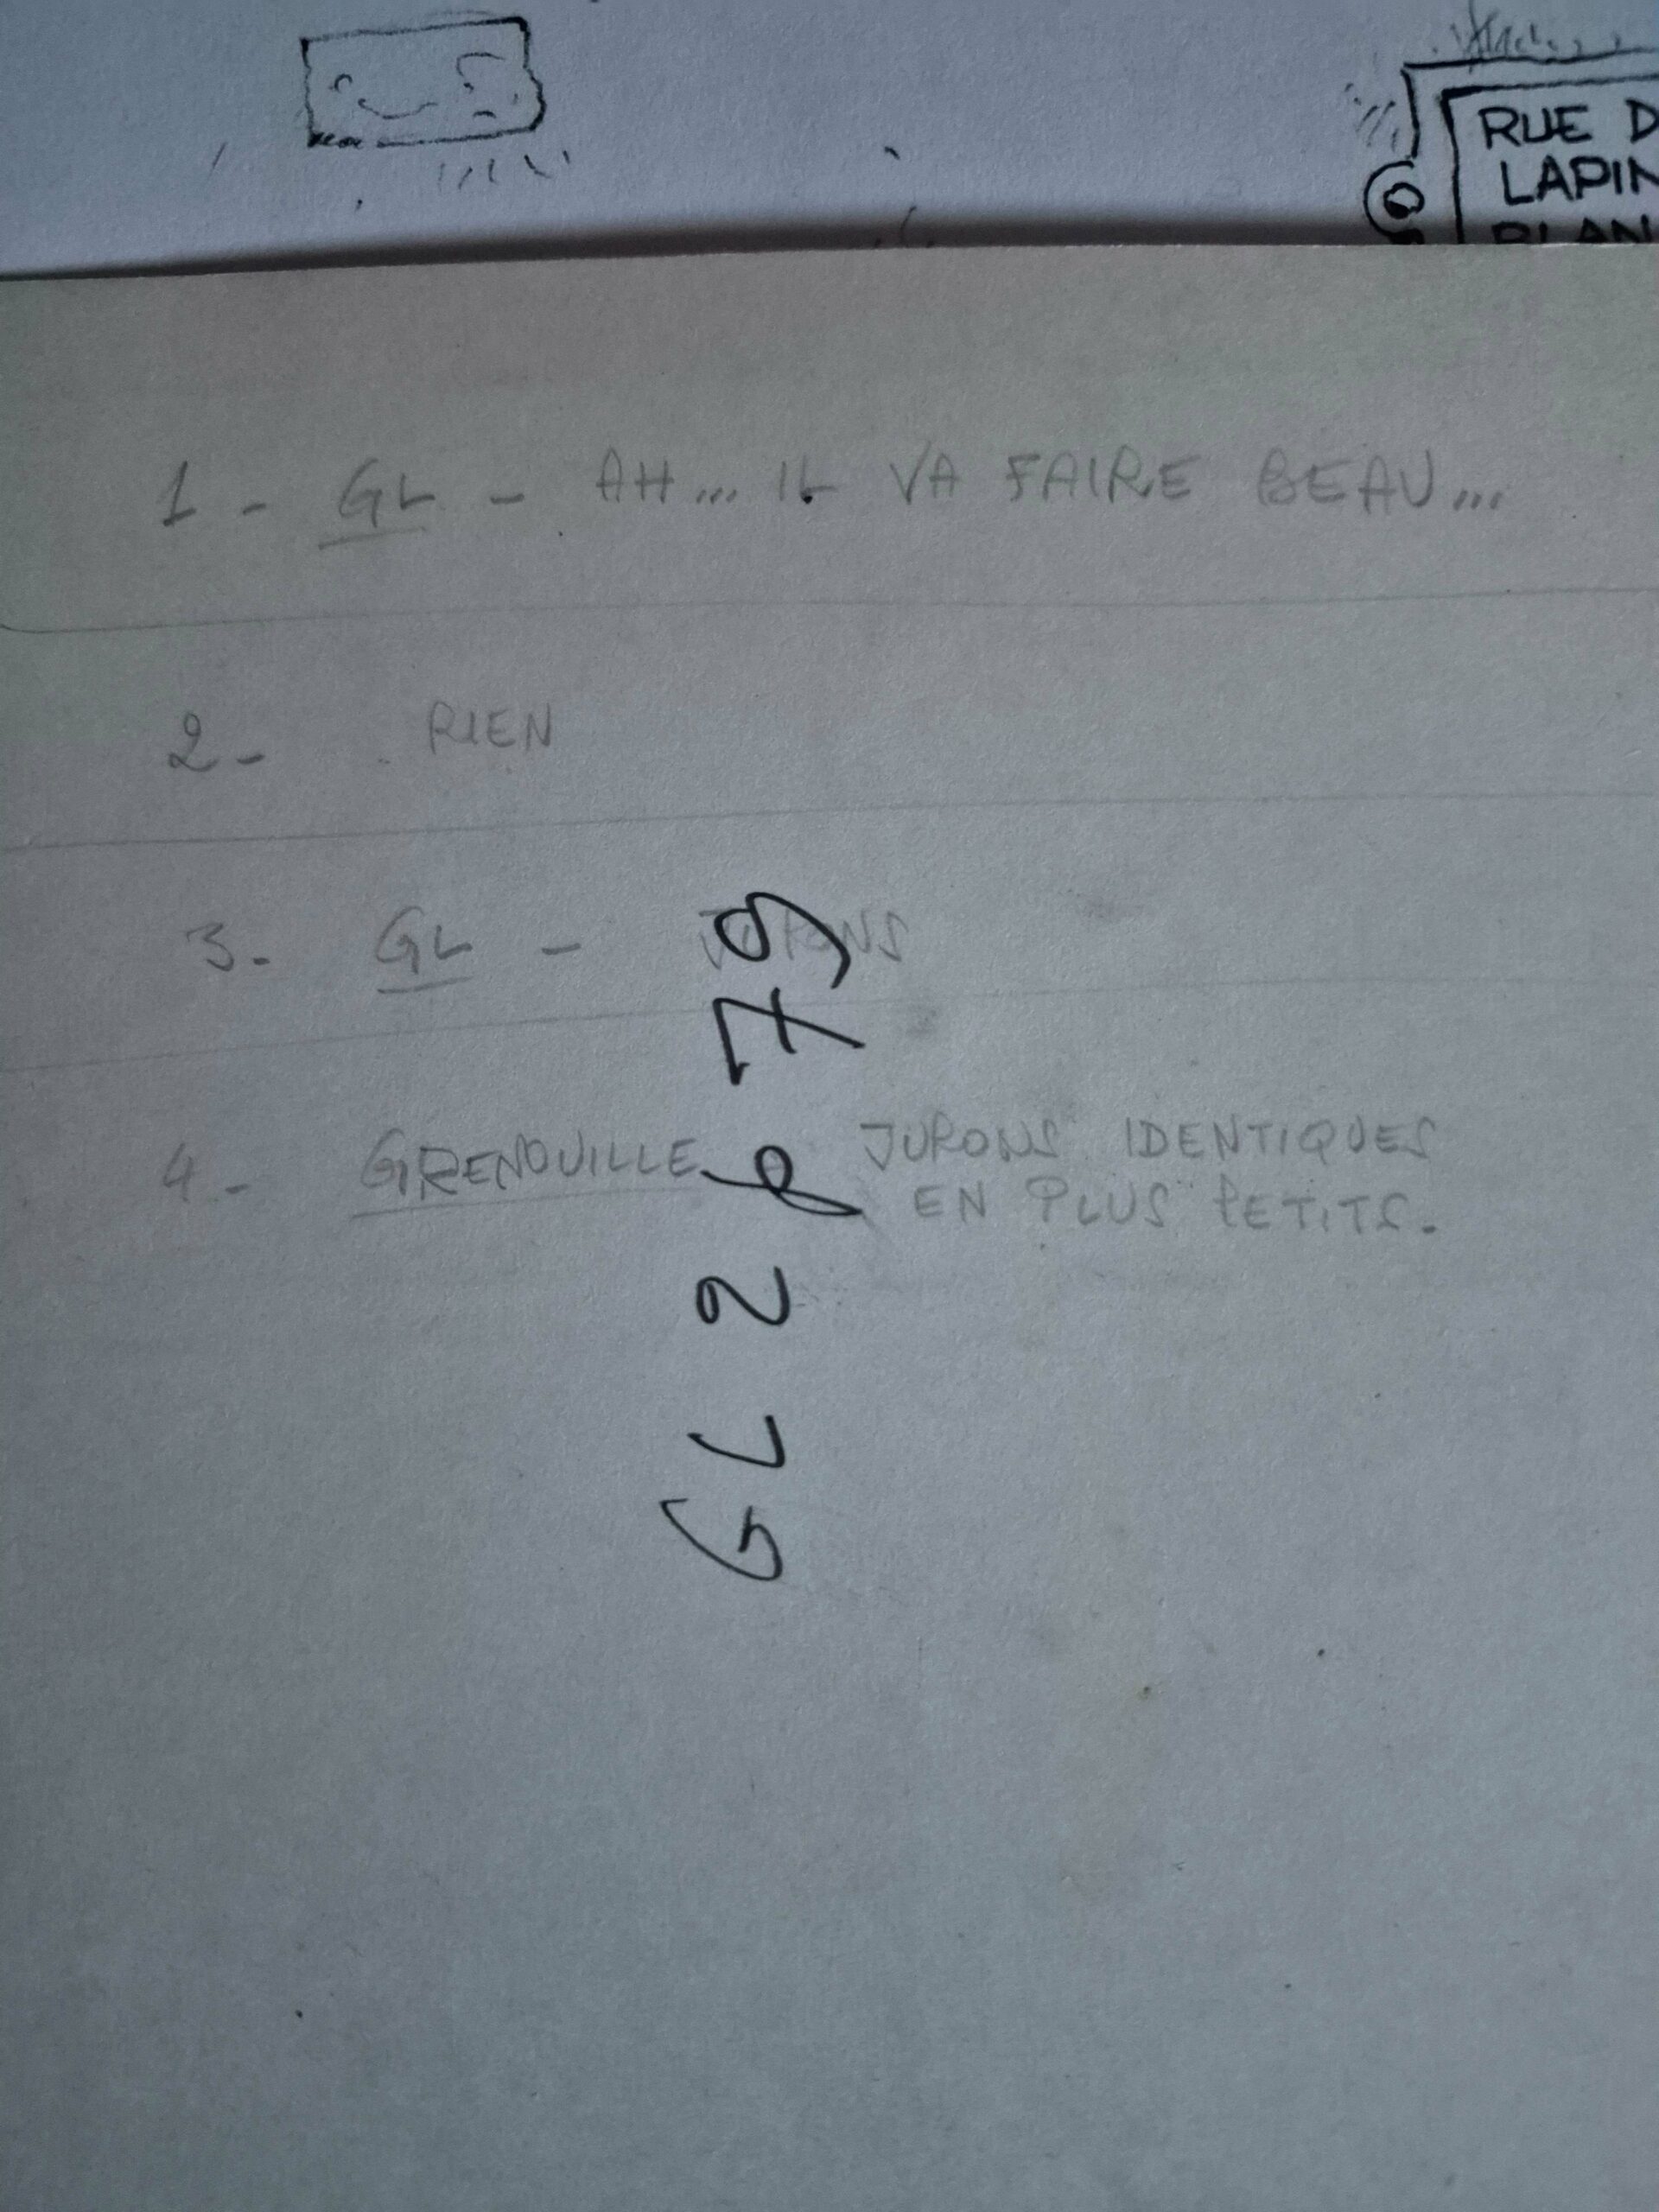 RUE D
LAPIN
BLAN
1 - GL - AH... IL VA FAIRE BEAU...
2 - RIEN
3 - GL - JURONS
4 - GRENOUILLE JURONS IDENTIQUES
EN PLUS PETITS.
GL 2 8 79